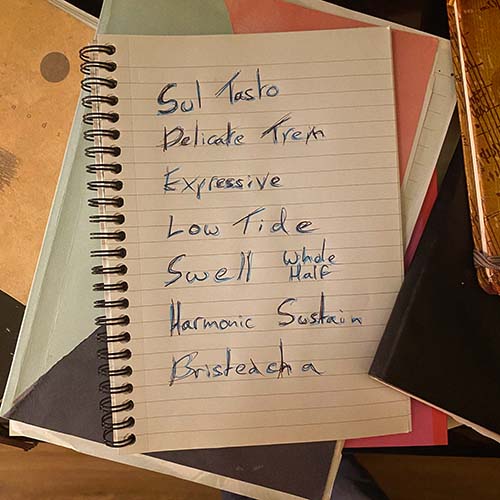 Sul Tasto
Delicate Trem
Expressive
Low Tide
Swell Whole
Half
Harmonic Sustain
Bristeacha